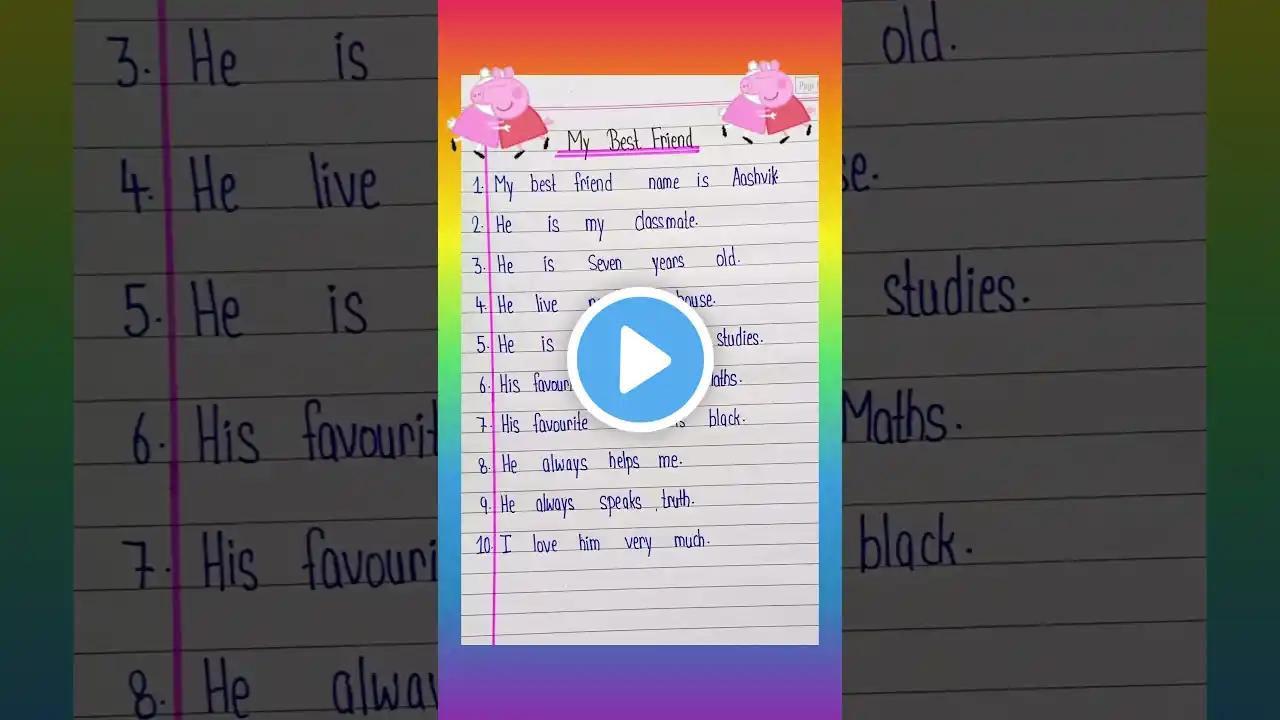 Page
My Best Friend
1. My best friend name is Aashvik
2. He is my classmate.
3. He is Seven years old.
4. He live house.
5. He is studies.
6. His Maths.
7. His favourite is black.
8. He always helps me.
9. He always speaks truth.
10. I love him very much.
3. He is old.
4. He live
5. He is studies.
6. His Maths.
7. His black.
8. He